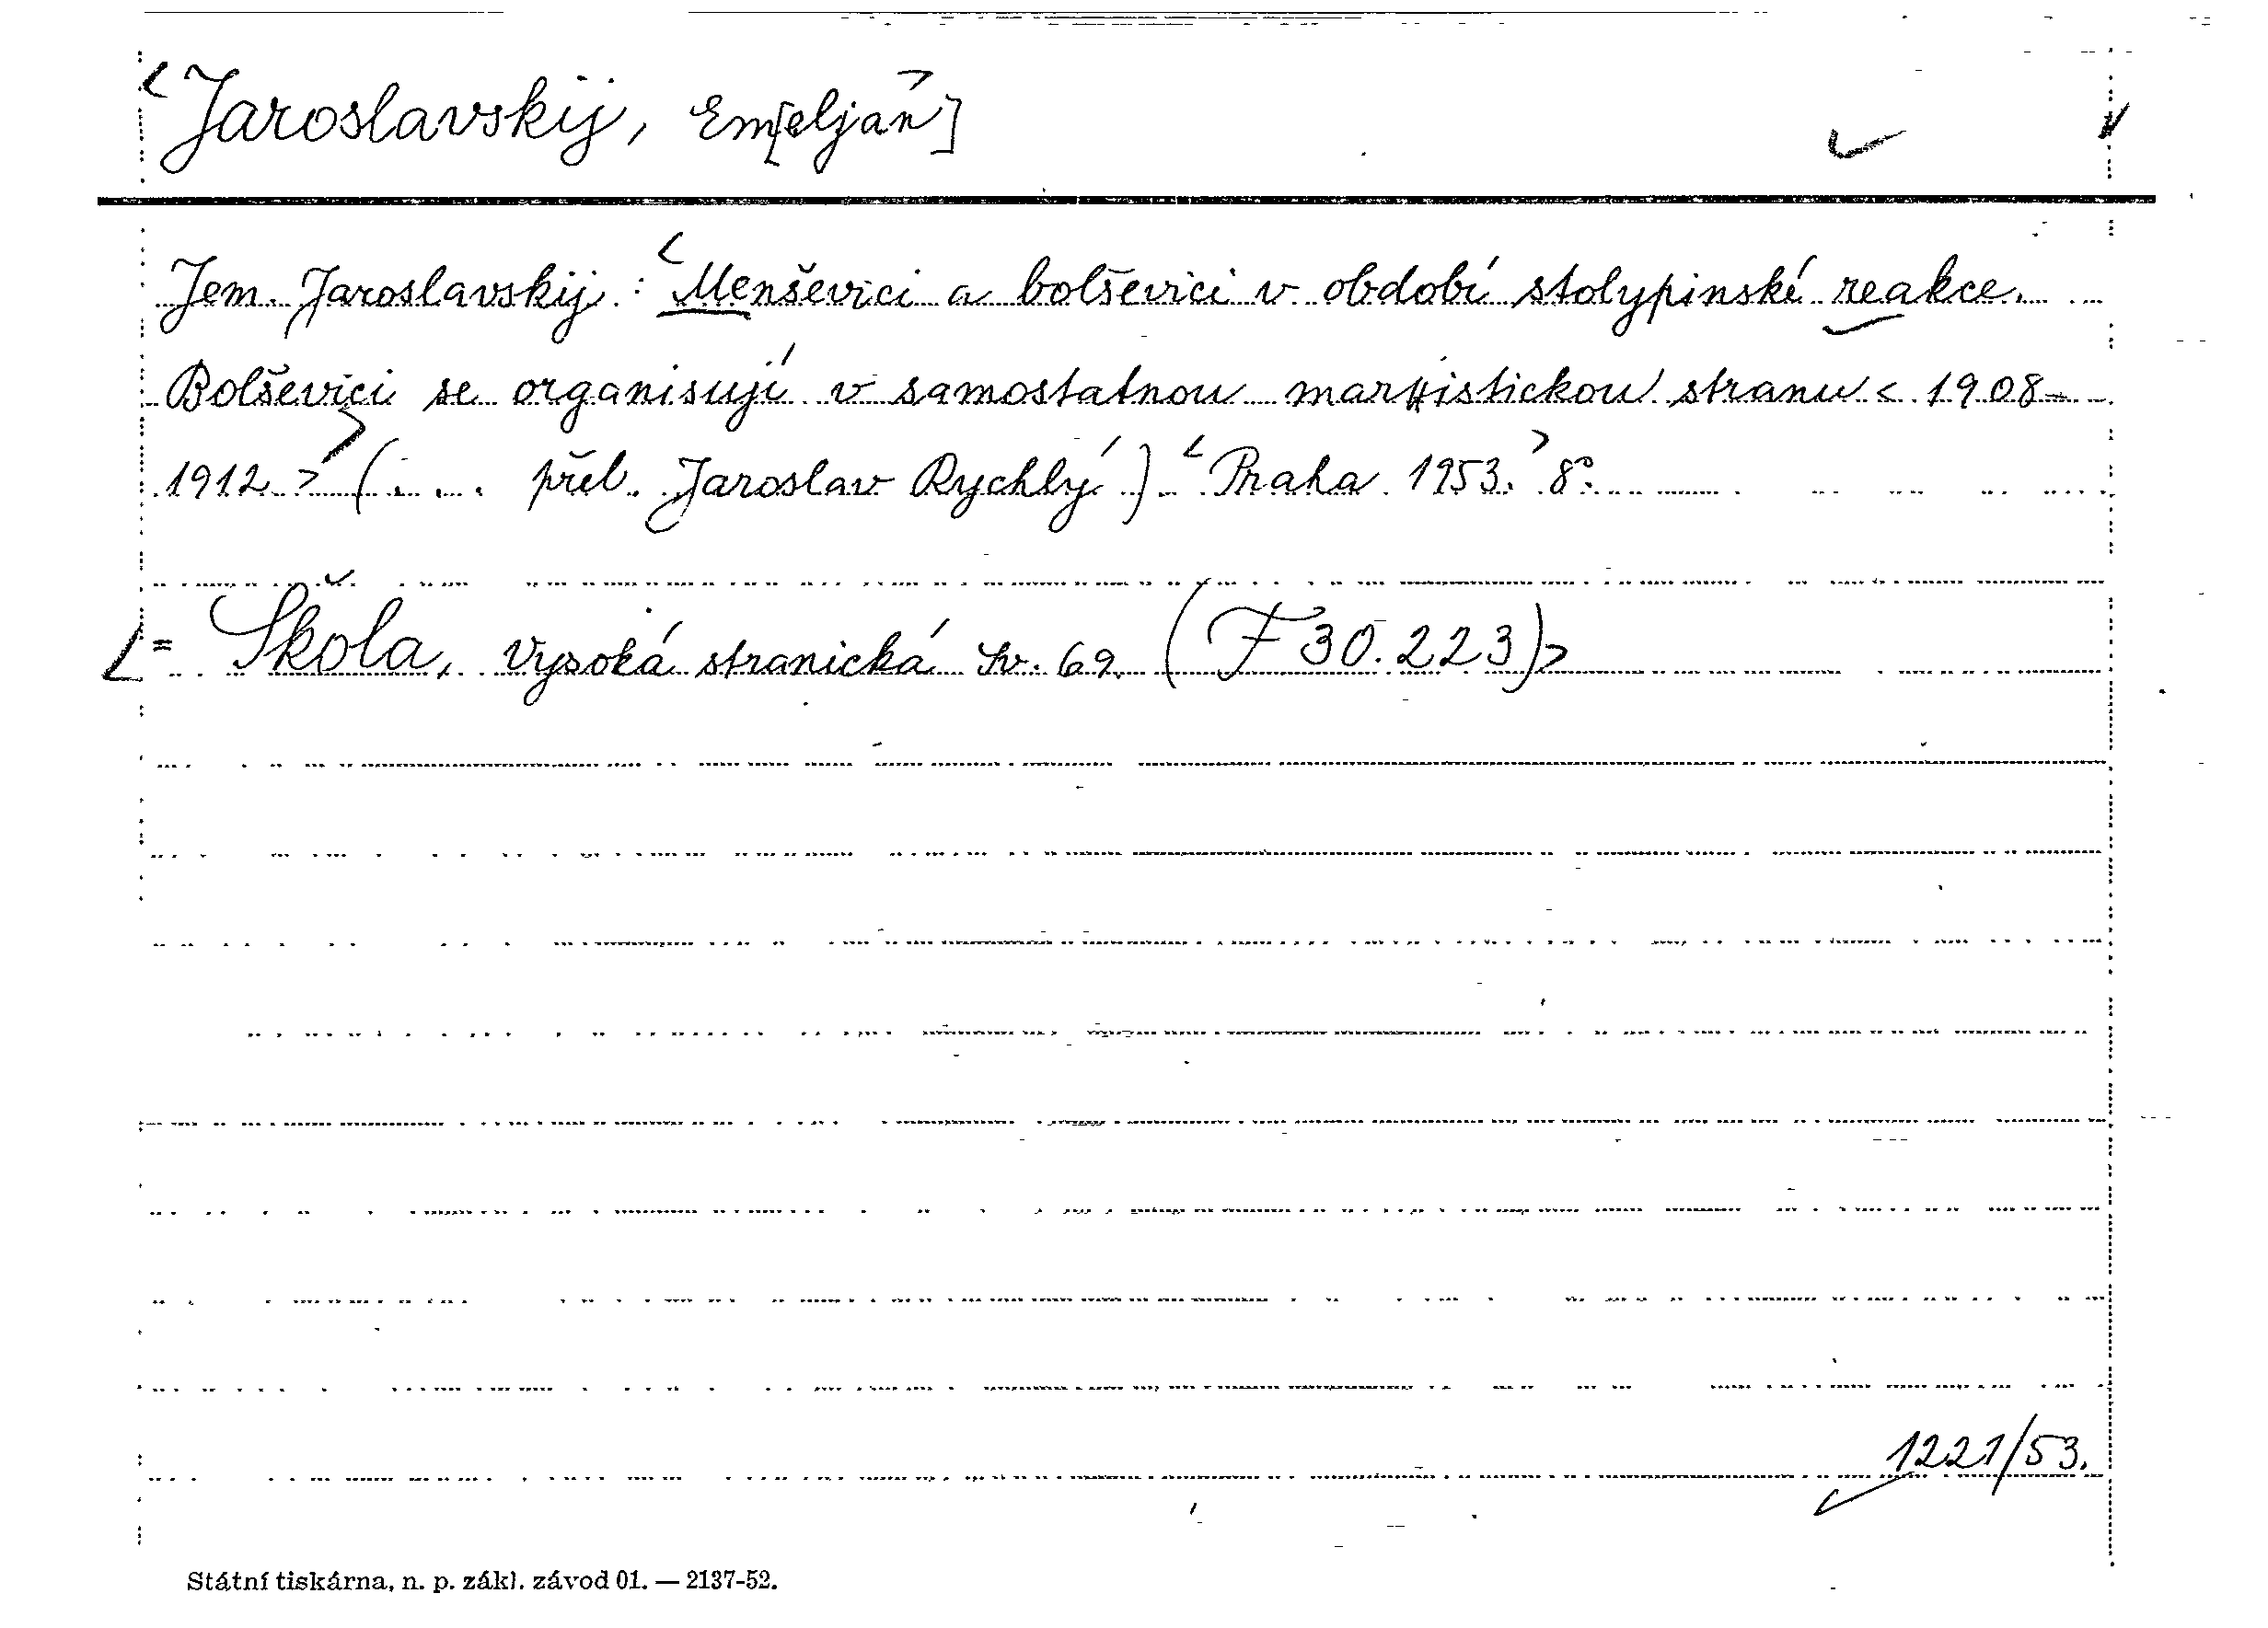 <Jaroslavskij, Em[eljan]>
Jem. Jaroslavskij: <Menševici a bolševici v období stolypinské reakce.
Bolševici se organisují v samostatnou marxistickou stranu < 1908-
1912 >> (... přel. Jaroslav Rychlý) <Praha 1953.> 8°.
<= Škola, Vysoká stranická sv. 69 (F 30.223)>
1221/53.
Státní tiskárna, n. p. zákl. závod 01. — 2137-52.